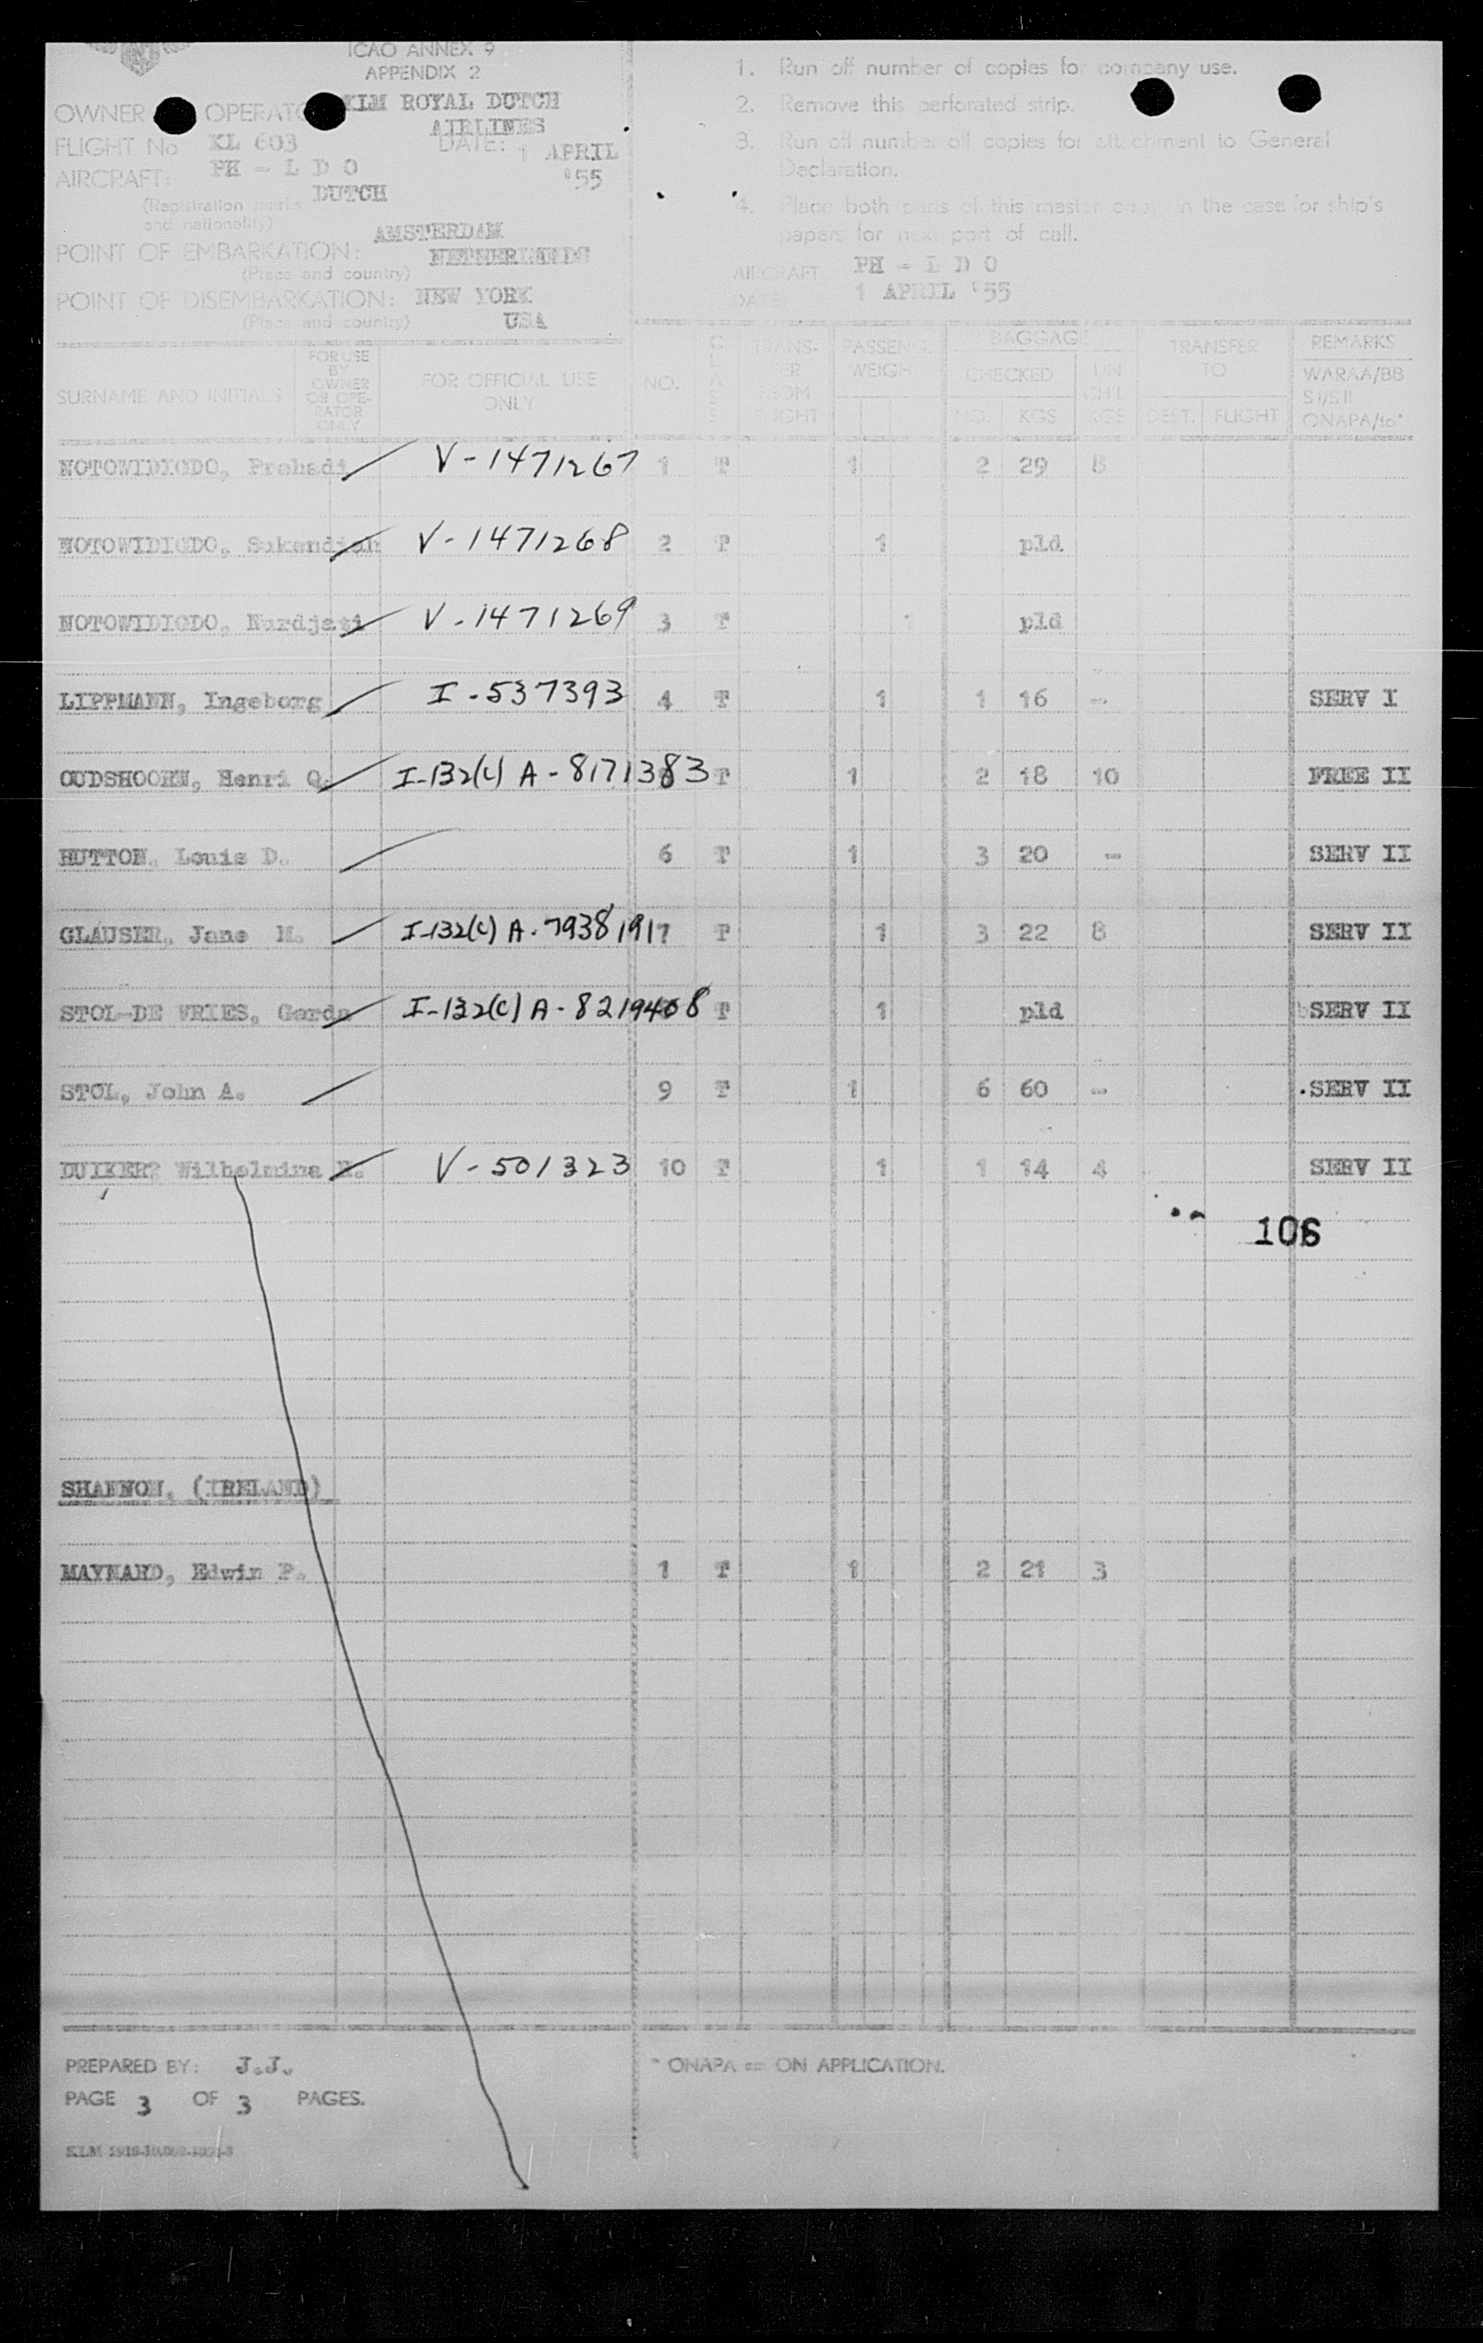 ICAO ANNEX 9
APPENDIX 2
OWNER OPERATO KLM ROYAL DUTCH
AIRLINES
FLIGHT No KL 603 DATE: 1 APRIL
AIRCRAFT: PH - L D O '55
(Registration marks DUTCH
and nationality)
POINT OF EMBARKATION: AMSTERDAM
(Place and country) NETHERLANDS
POINT OF DISEMBARKATION: NEW YORK
(Place and country) USA
1. Run off number of copies for company use.
2. Remove this perforated strip.
3. Run off number off copies for attachment to General
Declaration.
4. Place both parts of this master copy in the case for ship's
papers for next port of call.
AIRCRAFT PH - L D O
DATE: 1 APRIL '55
SURNAME AND INITIALS
FOR USE
BY
OWNER
OR OPE-
RATOR
ONLY
FOR OFFICIAL USE
ONLY
NO.
CLASS
TRANS-
FER
FROM
FLIGHT
PASSENG.
WEIGH
BAGGAGE
CHECKED
NO. KGS
UN
CH'L
KGS
TRANSFER
TO
DEST. FLIGHT
REMARKS
WARAA/BB
S I/S II
ONAPA/to*
NOTOWIDIGDO, Prehadi V-1471267 1 T 1 2 29 8
NOTOWIDIGDO, Sukandjah V-1471268 2 T 1 pld
NOTOWIDIGDO, Nurdjati V-1471269 3 T 1 pld
LIPPMANN, Ingeborg I-537393 4 T 1 1 16 - SERV I
OUDSHOORN, Henri Q. I-132(c) A-8171383 T 1 2 18 10 FREE II
HUTTON, Louis D. 6 T 1 3 20 - SERV II
GLAUSER, Jane M. I-132(c) A-7938191 7 T 1 3 22 8 SERV II
STOL-DE VRIES, Gerda I-132(c) A-8219408 T 1 pld SERV II
STOL, John A. 9 T 1 6 60 - SERV II
DUIKER? Wilhelmina H. V-501323 10 T 1 1 14 4 SERV II
106
SHANNON, (IRELAND)
MAYNARD, Edwin P. 1 T 1 2 21 3
PREPARED BY: J.J.
* ONAPA = ON APPLICATION.
PAGE 3 OF 3 PAGES.